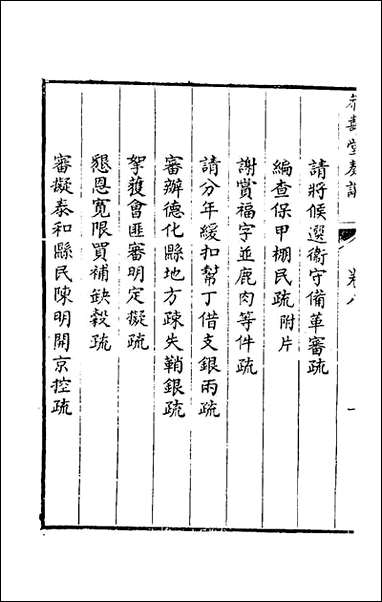 壽堂奏議 卷八 一
請將候選衛守備革審疏
編查保甲棚民疏 附片
謝賞福字並鹿肉等件疏
請分年緩扣幫丁借支銀兩疏
審辦德化縣地方疎失鞘銀疏
拏獲會匪審明定擬疏
懇恩寬限買補缺穀疏
審擬泰和縣民陳明開京控疏